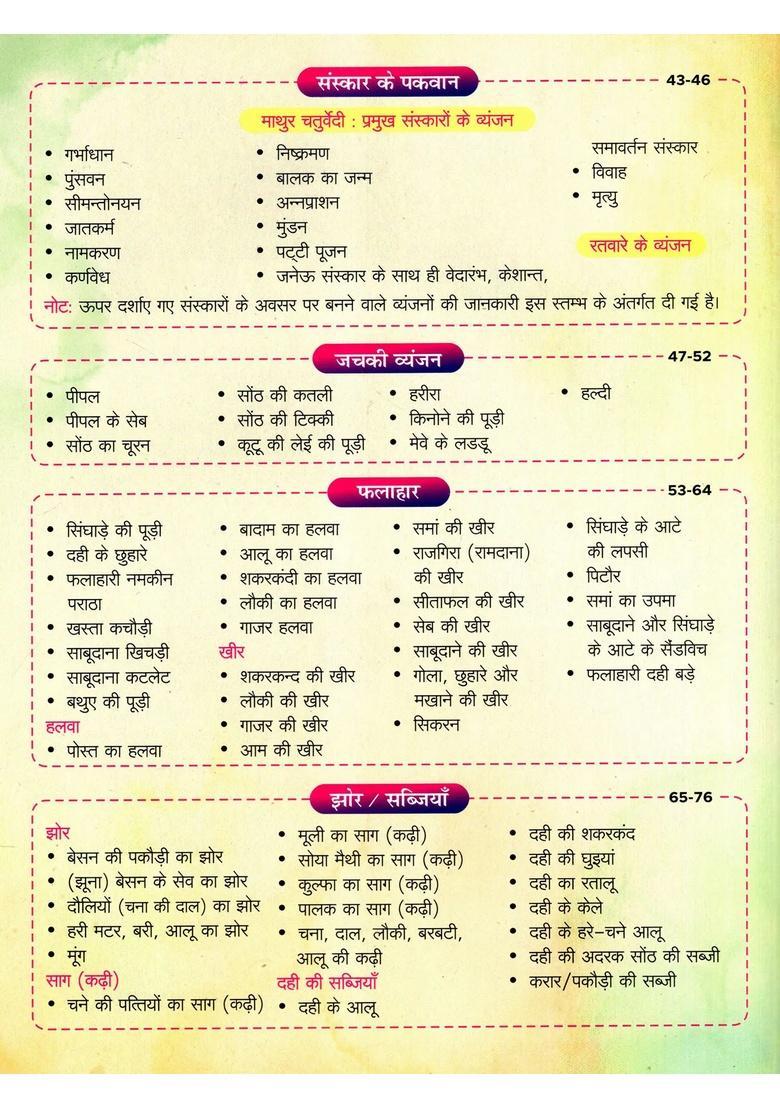 संस्कार के पकवान 43-46
माथुर चतुर्वेदी : प्रमुख संस्कारों के व्यंजन
• गर्भाधान
• पुंसवन
• सीमन्तोनयन
• जातकर्म
• नामकरण
• कर्णवेध
• निष्क्रमण
• बालक का जन्म
• अन्नप्राशन
• मुंडन
• पट्टी पूजन
• जनेऊ संस्कार के साथ ही वेदारंभ, केशान्त,
समावर्तन संस्कार
• विवाह
• मृत्यु
रतवारे के व्यंजन
नोट: ऊपर दर्शाए गए संस्कारों के अवसर पर बनने वाले व्यंजनों की जानकारी इस स्तम्भ के अंतर्गत दी गई है।
जचकी व्यंजन 47-52
• पीपल
• पीपल के सेब
• सोंठ का चूरन
• सोंठ की कतली
• सोंठ की टिक्की
• कूटू की लेई की पूड़ी
• हरीरा
• किनोने की पूड़ी
• मेवे के लडडू
• हल्दी
फलाहार 53-64
• सिंघाड़े की पूड़ी
• दही के छुहारे
• फलाहारी नमकीन
पराठा
• खस्ता कचौड़ी
• साबूदाना खिचड़ी
• साबूदाना कटलेट
• बथुए की पूड़ी
हलवा
• पोस्त का हलवा
• बादाम का हलवा
• आलू का हलवा
• शकरकंदी का हलवा
• लौकी का हलवा
• गाजर हलवा
खीर
• शकरकन्द की खीर
• लौकी की खीर
• गाजर की खीर
• आम की खीर
• समां की खीर
• राजगिरा (रामदाना)
की खीर
• सीताफल की खीर
• सेब की खीर
• साबूदाने की खीर
• गोला, छुहारे और
मखाने की खीर
• सिकरन
• सिंघाड़े के आटे
की लपसी
• पिटौर
• समां का उपमा
• साबूदाने और सिंघाड़े
के आटे के सैंडविच
• फलाहारी दही बड़े
झोर / सब्जियाँ 65-76
झोर
• बेसन की पकौड़ी का झोर
• (झूना) बेसन के सेव का झोर
• दौलियों (चना की दाल) का झोर
• हरी मटर, बरी, आलू का झोर
• मूंग
साग (कढ़ी)
• चने की पत्तियों का साग (कढ़ी)
• मूली का साग (कढ़ी)
• सोया मैथी का साग (कढ़ी)
• कुल्फा का साग (कढ़ी)
• पालक का साग (कढ़ी)
• चना, दाल, लौकी, बरबटी,
आलू की कढ़ी
दही की सब्जियाँ
• दही के आलू
• दही की शकरकंद
• दही की घुइयां
• दही का रतालू
• दही के केले
• दही के हरे-चने आलू
• दही की अदरक सोंठ की सब्जी
• करार/पकौड़ी की सब्जी